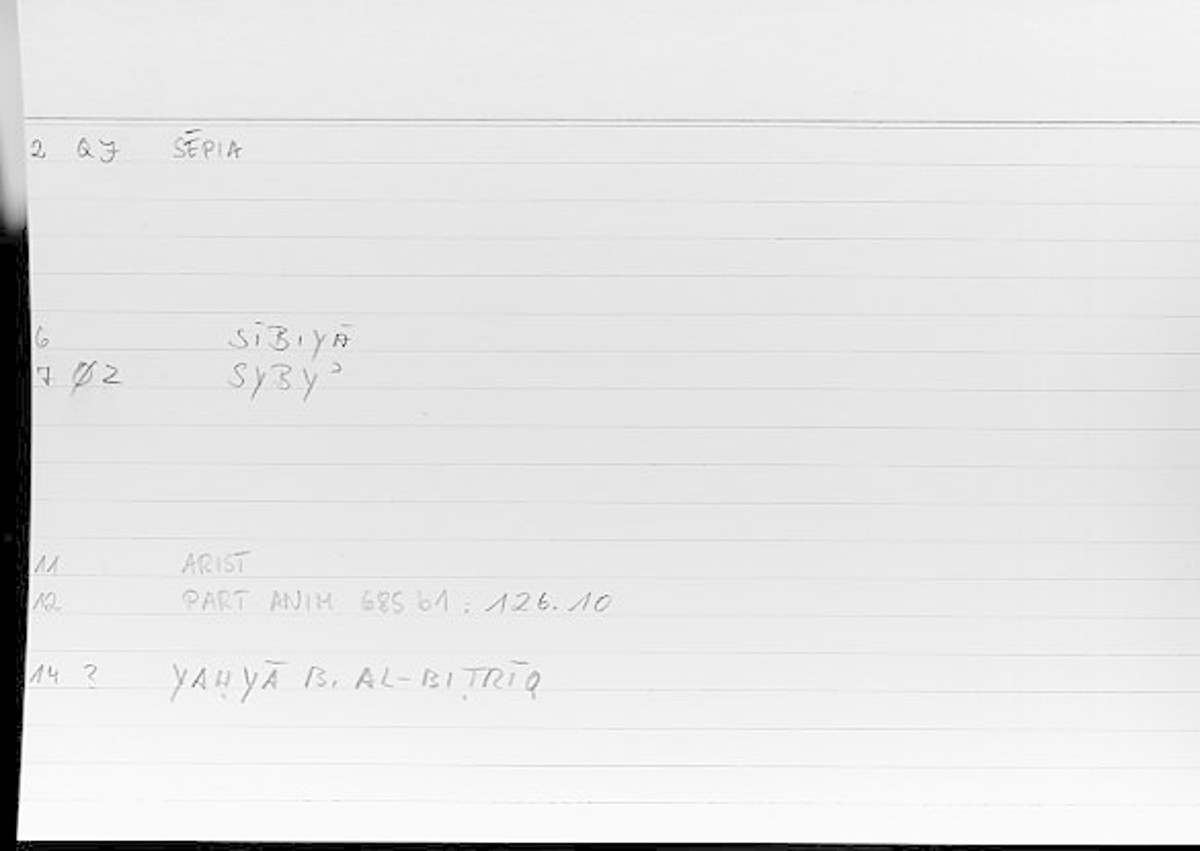 2 QJ SĒPIA
6 SĪBIYĀ
7 Ø2 SYBYʾ
11 ARIST
12 PART ANIM 685 b1 : 126.10
14 ? YAḤYĀ B. AL-BIṬRĪQ